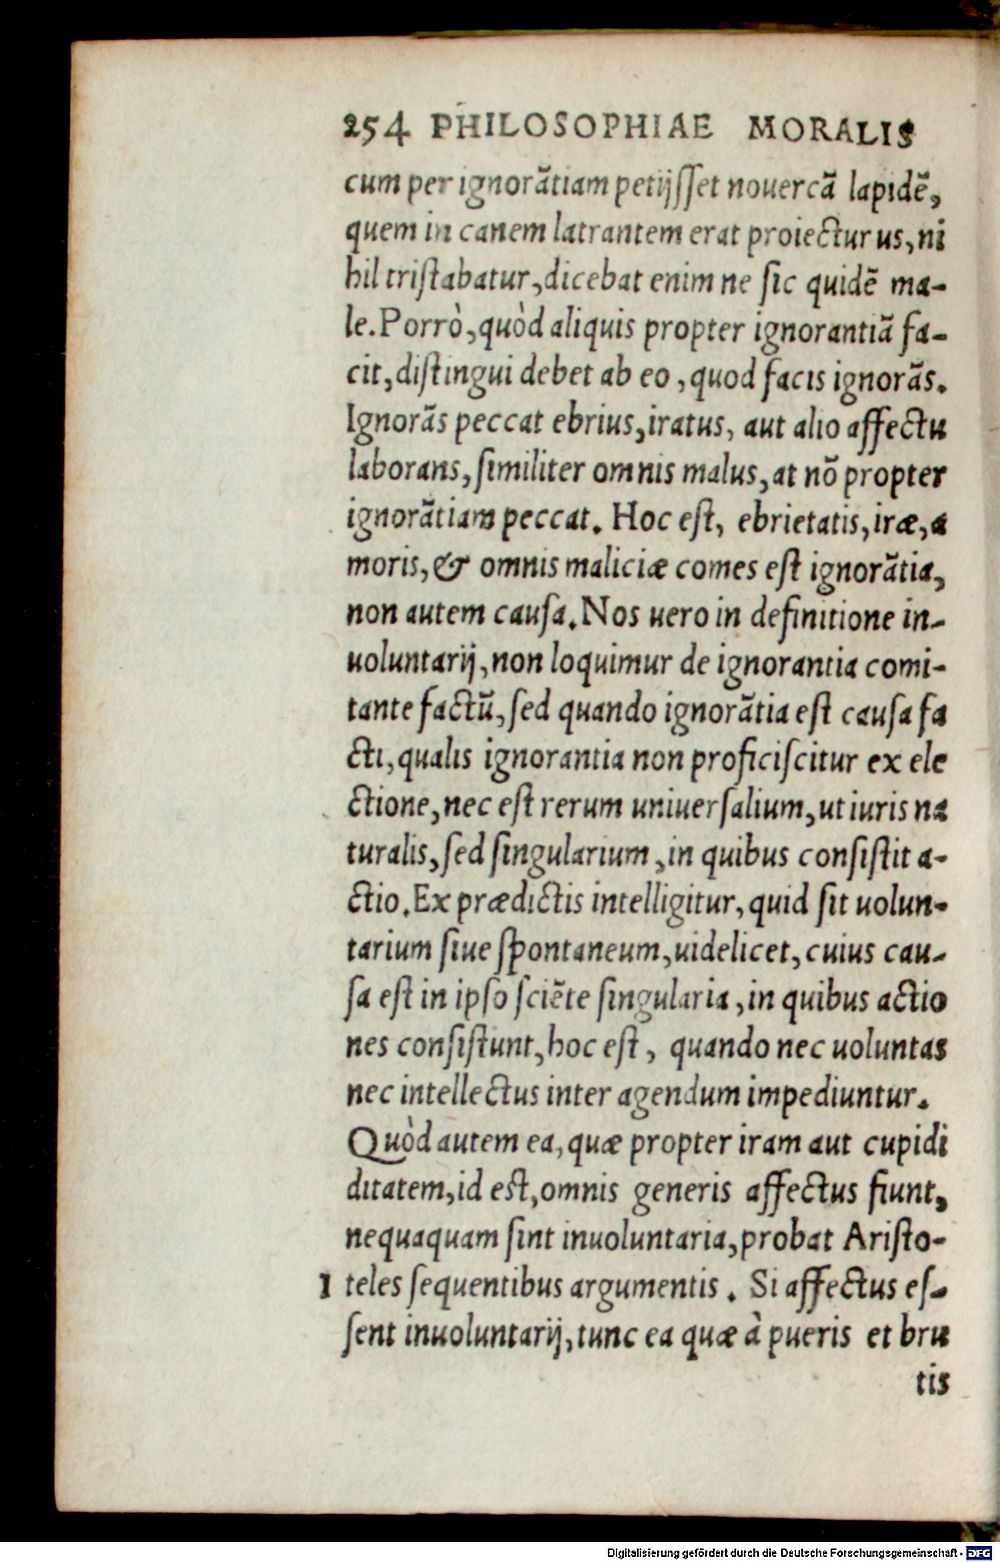 254 PHILOSOPHIAE MORALIS
cum per ignorãtiam petijſſet nouercã lapidẽ,
quem in canem latrantem erat proiecturus, ni
hil triſtabatur, dicebat enim ne ſic quidẽ ma-
le. Porrò, quòd aliquis propter ignorantiã fa-
cit, diſtingui debet ab eo, quod facis ignorãs.
Ignorãs peccat ebrius, iratus, aut alio affectu
laborans, ſimiliter omnis malus, at nõ propter
ignorãtiam peccat. Hoc eſt, ebrietatis, iræ, a
moris, & omnis maliciæ comes eſt ignorãtia,
non autem cauſa. Nos uero in definitione in-
uoluntarij, non loquimur de ignorantia comi-
tante factũ, ſed quando ignorãtia eſt cauſa fa
cti, qualis ignorantia non proficiſcitur ex ele
ctione, nec eſt rerum uniuerſalium, ut iuris na
turalis, ſed ſingularium, in quibus conſiſtit a-
ctio. Ex prædictis intelligitur, quid ſit uolun-
tarium ſiue ſpontaneum, uidelicet, cuius cau-
ſa eſt in ipſo ſciẽte ſingularia, in quibus actio
nes conſiſtunt, hoc eſt, quando nec uoluntas
nec intellectus inter agendum impediuntur.
Quòd autem ea, quæ propter iram aut cupidi
ditatem, id eſt, omnis generis affectus fiunt,
nequaquam ſint inuoluntaria, probat Ariſto-
1 teles ſequentibus argumentis. Si affectus eſ-
ſent inuoluntarij, tunc ea quæ à pueris et bru
tis
Digitalisierung gefördert durch die Deutsche Forschungsgemeinschaft - DFG